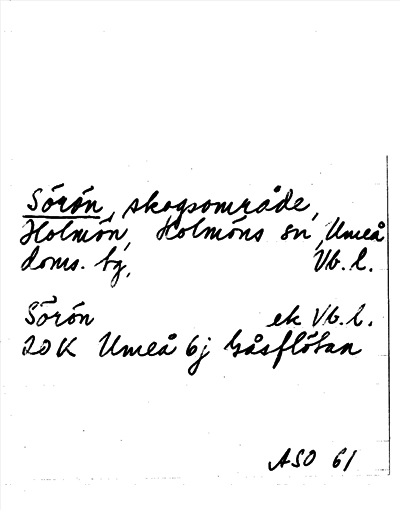 Sörön, skogsområde,
Holmön, Holmöns sn, Umeå
doms. bg, Vb. l.
Sörön ek Vb. l.
20K Umeå 6j Gåsflötan
ASO 61